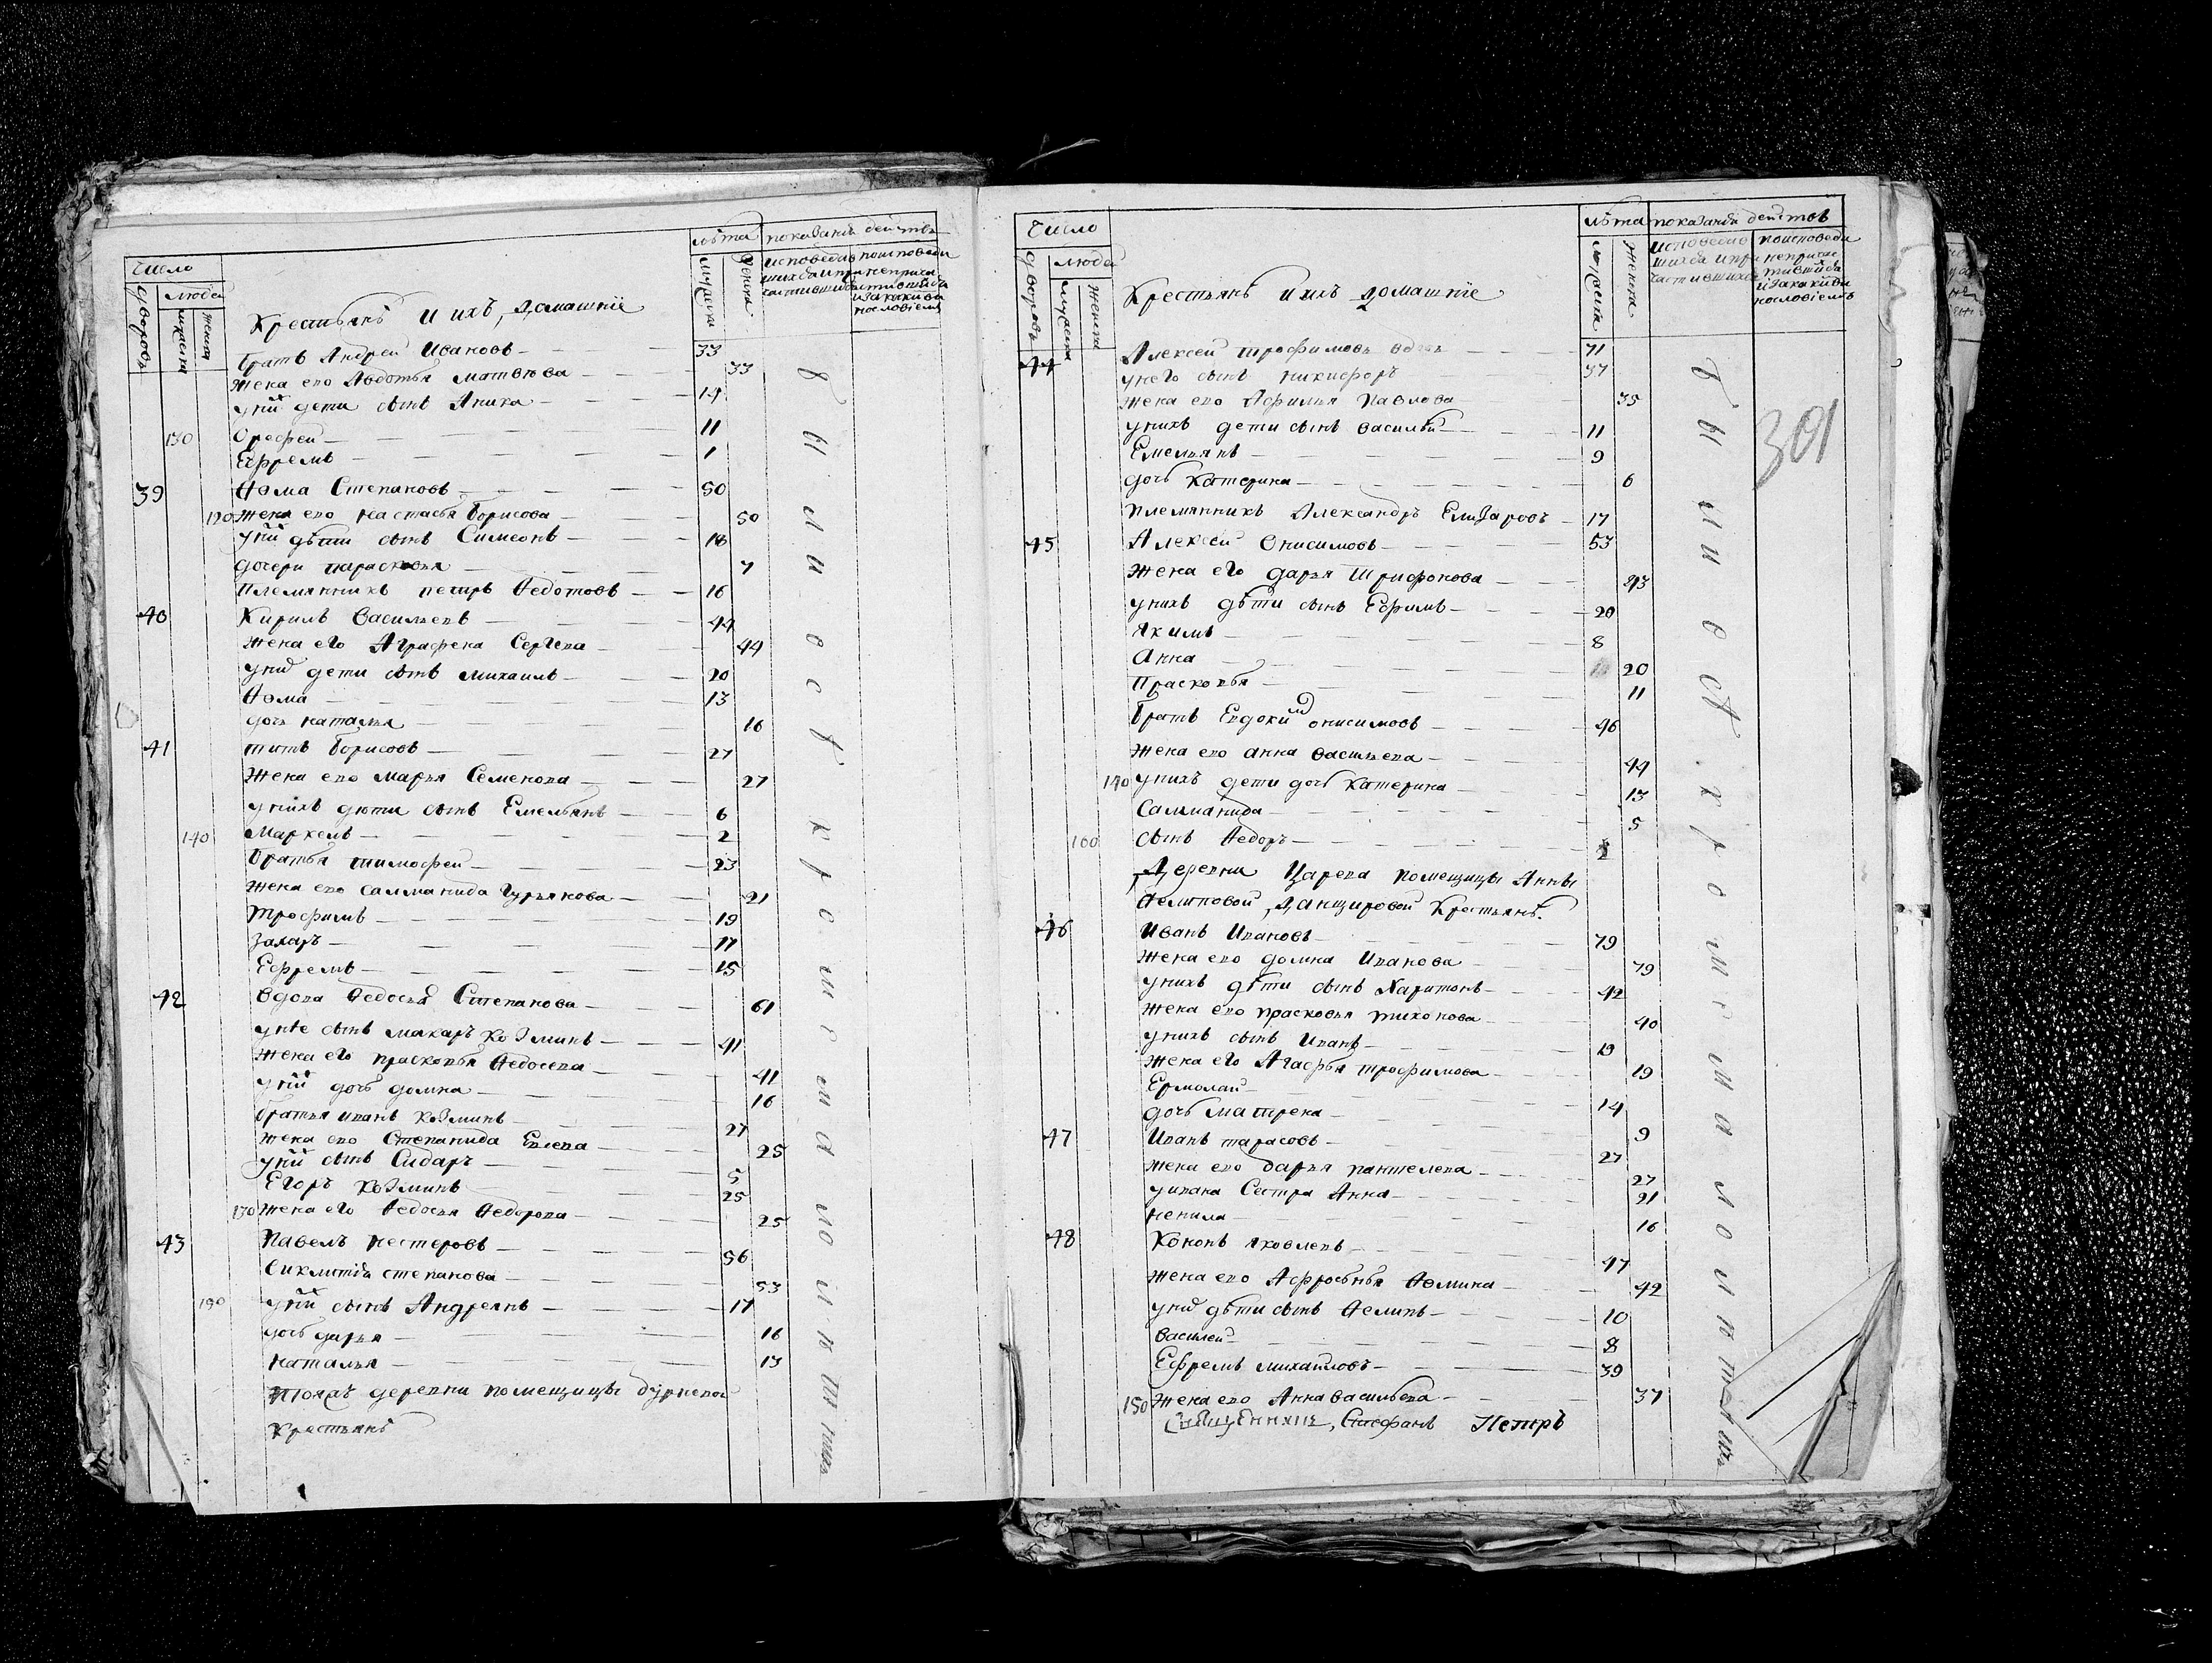 Число
лѣта показанія действъ
дворовъ
людей
мужеска
женска
Крестьянъ и ихъ домашніе
мужеска
женска
исповедав
шихся и при
частившихся
поисповеди
непричас
тившихся
и за какивъ
нословіемъ
братъ Андрей Ивановъ 33
жена ево Авдотья Матвѣева 33
у них дети сынъ Аника 14
130 Орефеи 11
Ефремъ 1
39 Ѳома Степановъ 50
120 жена ево Настасья борисова 50
у них дѣти сынъ Симеонъ 18
дочери параскевья 7
Племянникъ петръ Ѳедотовъ 16
40 Кирилъ Васильевъ 44
жена его Аграфена Сергева 44
у них дети сынъ михаилъ 20
Ѳома 13
дочь наталья 16
41 титъ борисовъ 27
жена ево марья Семенова 27
у нихъ дюти сынъ Емельянъ 6
140 Маркелъ 2
братья тимофеи 23
жена ево салманида Гурьянова 21
трофимъ 19
Захаръ 17
Ефремъ 15
42 вдова Ѳедосья Степанова 61
у нѣе сынъ макаръ козминъ 41
жена его прасковья Ѳедосева 41
у них дочь домна 16
братья иванъ козминъ 27
жена ево Степанида Евлева 25
у них сынъ Сидаръ 5
Егоръ козминъ 25
130 жена его Ѳедосья Ѳедорова 25
43 Павелъ нестеровъ 56
степанова 53
150 у них сынъ Андреянъ 17
дочь дарья 16
наталья 13
тояжъ деревни помещицы дурнева
крестьянъ
были все у креста
Число
лѣта показанія действъ
дворовъ
людей
мужеска
женска
Крестьянъ и ихъ домашніе
мужеска
женска
исповедав
шихся и при
частившихся
поисповеди
непричас
тившихся
и за какивъ
нословіемъ
301
44 Алексей трофимовъ вдовъ 71
у него сынъ никифоръ 37
жена ево Афимья Павлова 35
у нихъ дети сынъ василей 11
Емельянъ 9
дочь Катерина 6
племянникъ Александръ Елизаровъ 17
45 Алексеи Онисимовъ 53
жена его дарья Трифонова 43
у нихъ дѣти сынъ Ефимъ 20
якимъ 8
Анна 20
Прасковья 11
братъ Евдоким онисимовъ 46
жена ево анна васильева 44
140 у нихъ дети дочь катерина 13
Салманида 5
100 сынъ Ѳедоръ
Деревни Царева помещицы Анны
Ѳелиповой, данщировой крестьянъ.
46 Иванъ Ивановъ 79
жена ево домна Иванова 79
у нихъ дѣти сынъ Харитонъ 42
жена ево прасковья тихонова 40
у нихъ сынъ Иванъ 19
жена его Агафья трофимова 19
Ермолаи 14
дочь матрена 9
47 Иванъ тарасовъ 27
жена ево дарья пантелева 27
у ивана Сестра Анна 21
ненила 16
48 Кононъ яковлевъ 47
жена ево Афросинья Ѳомина 42
у них дѣти сынъ Ѳелипъ 10
василеи 8
Ефремъ михаиловъ 39
150 жена ево Анна васильева 37
Священникъ, Стефанъ Петръ